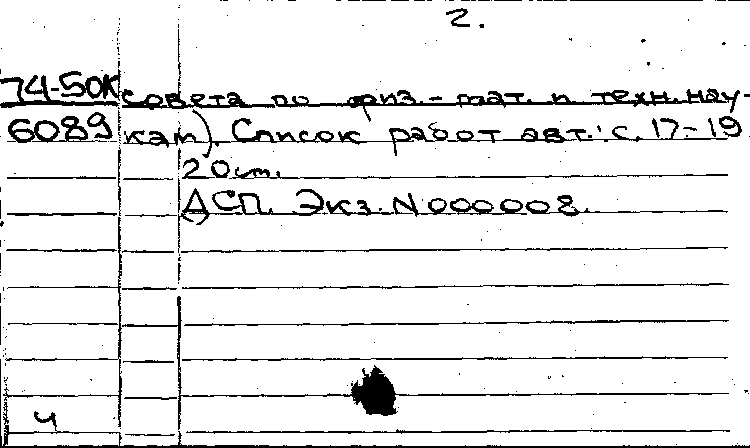 2.
74-50К совета по физ.-мат. и техн. нау-
6089 кам). Список работ авт.: с. 17-19
20 см.
ДСП. Экз. N 000008.
ч